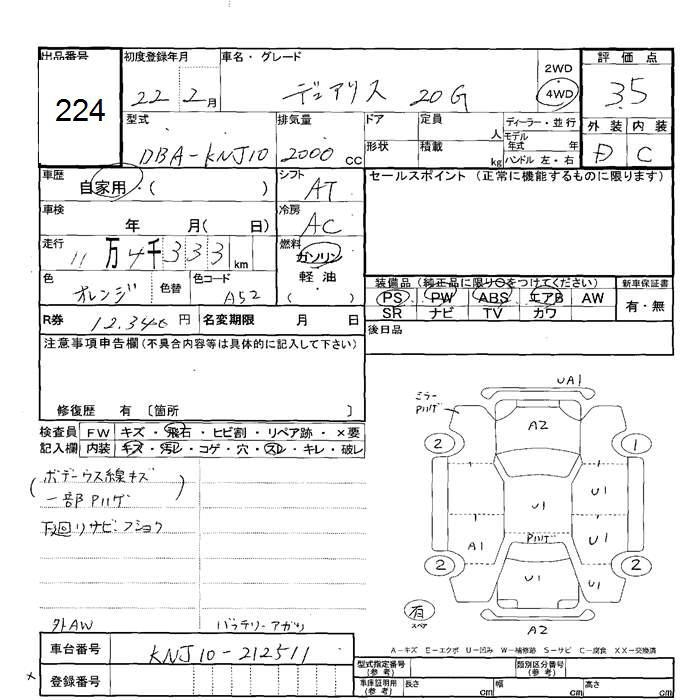 出品番号 初度登録年月 車名・グレード 2WD 評価点
224 22 2月 デュアリス 20G ・ 4WD 3.5
型式 排気量 ドア 定員 人 ディーラー・並行 外装 内装
DBA-KNJ10 2000 cc 形状 積載 kg モデル年式 年 ハンドル 左・右 D C
車歴 自家用・( ) シフト AT セールスポイント (正常に機能するものに限ります)
車検 年 月( 日) 冷房 AC
走行 11万4千333km 燃料 ガソリン
色 オレンジ 色替 色コード A52 軽油 ( )
装備品 (純正品に限り○をつけてください) 新車保証書
PS PW ABS エアB AW 有・無
SR ナビ TV カワ
R券 12,340円 名変期限 月 日 後日品
注意事項申告欄(不具合内容等は具体的に記入して下さい)
修復歴 有 〔箇所 〕
検査員 FW キズ・飛石・ヒビ割・リペア跡・×要
記入欄 内装 キズ・汚レ・コゲ・穴・スレ・キレ・破レ
(ボデーウス線キズ
一部Pハゲ)
下廻リサビ・フショク
外AW バッテリーアガリ
UA1
ミラー
Pハゲ
A2
2 1
U1 U1
Pハゲ
A1 U1
2 U1 2
有
スペア
A2
A-キズ E-エクボ U-凹み W-補修跡 S-サビ C-腐食 XX-交換済
車台番号 KNJ10-212511 型式指定番号(参考) 類別区分番号(参考)
× 登録番号 車庫証明用(参考) 長さ cm 幅 cm 高さ cm